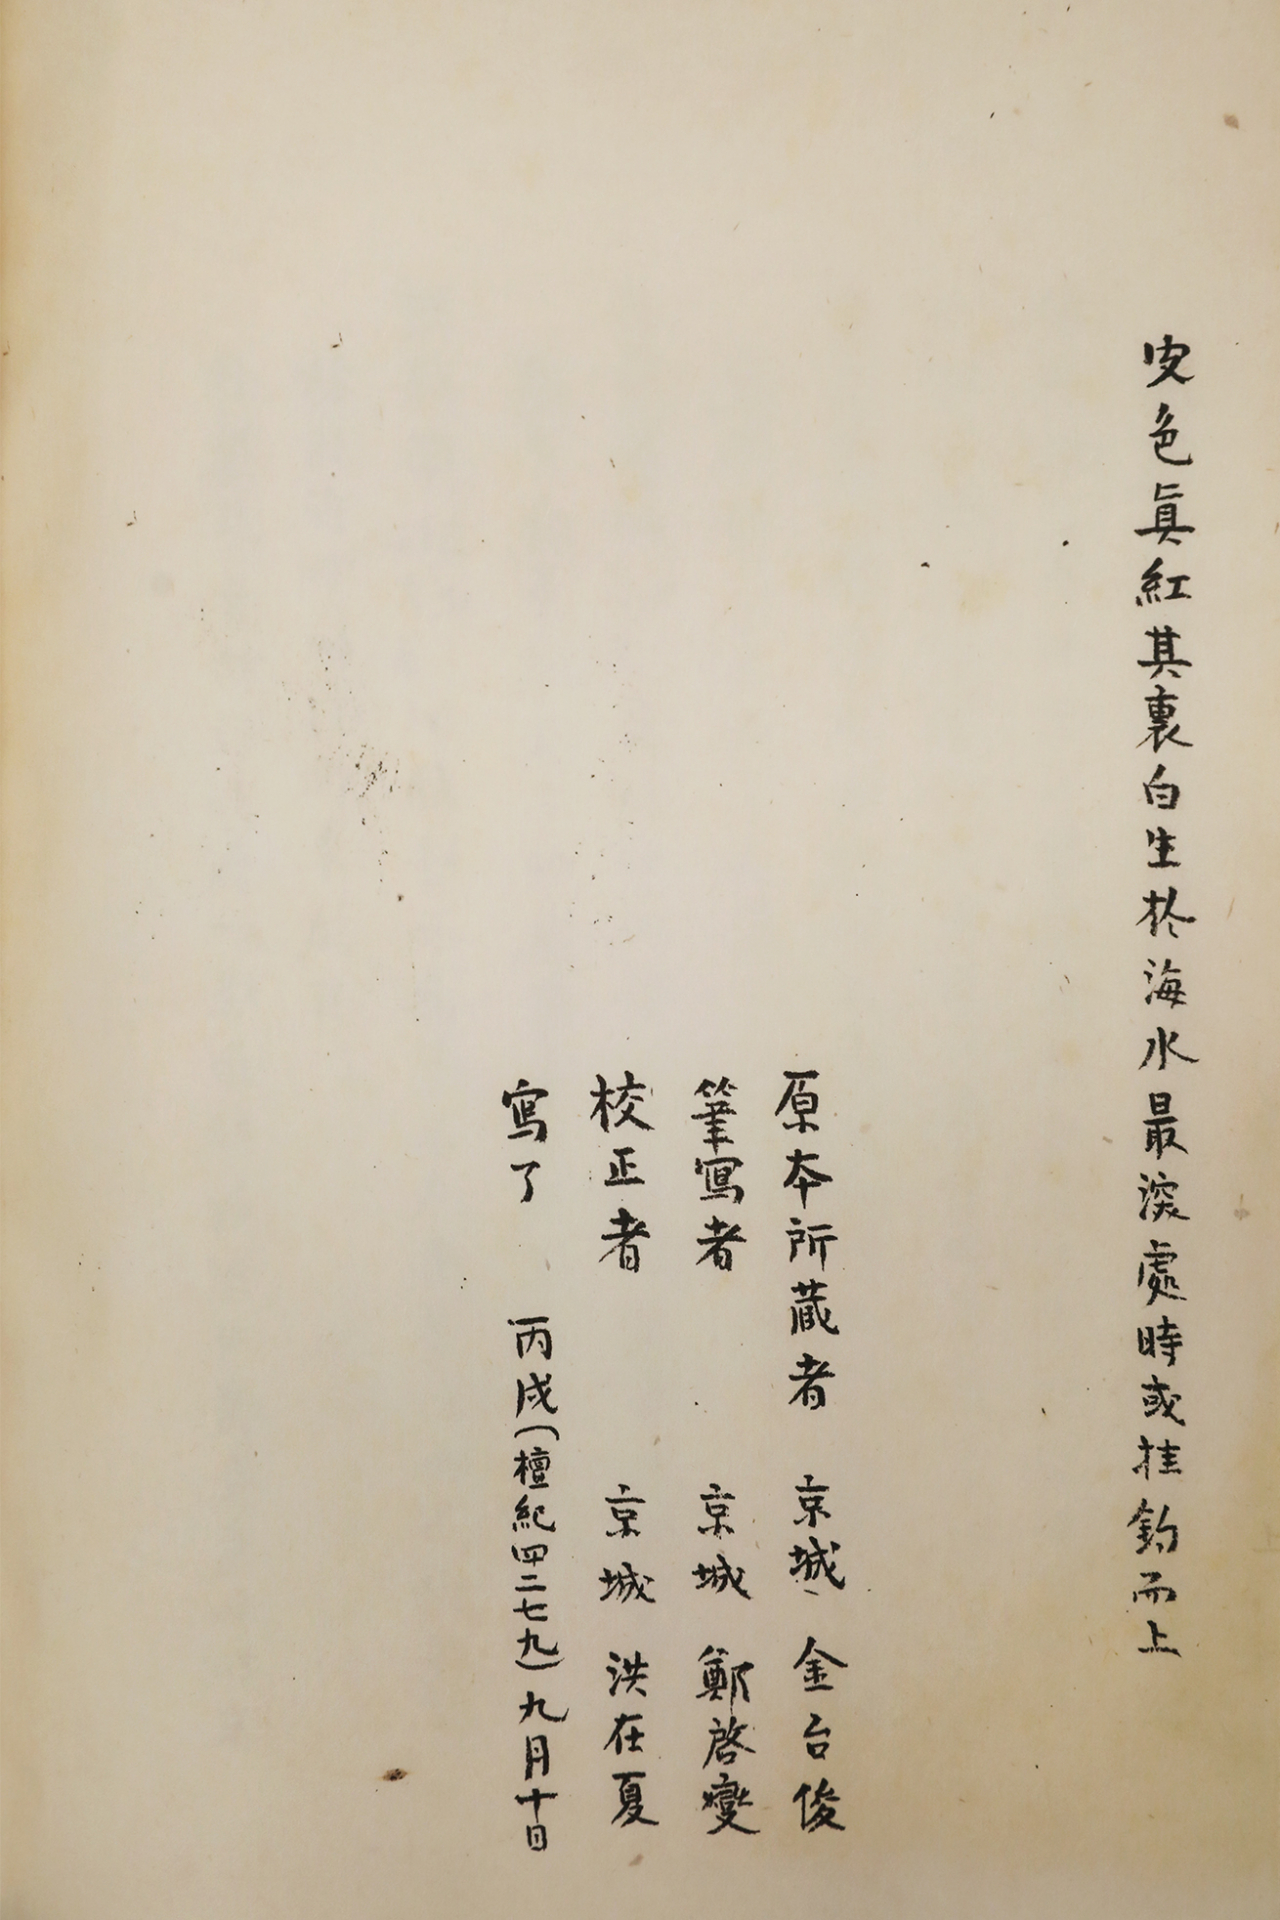 皮色眞紅其裏白生於海水最深處時或挂鉤而上
原本所蔵者 京城 金台俊
筆寫者 京城 鄭啓燮
校正者 京城 洪在夏
寫了 丙戌(檀紀四二七九)九月十日